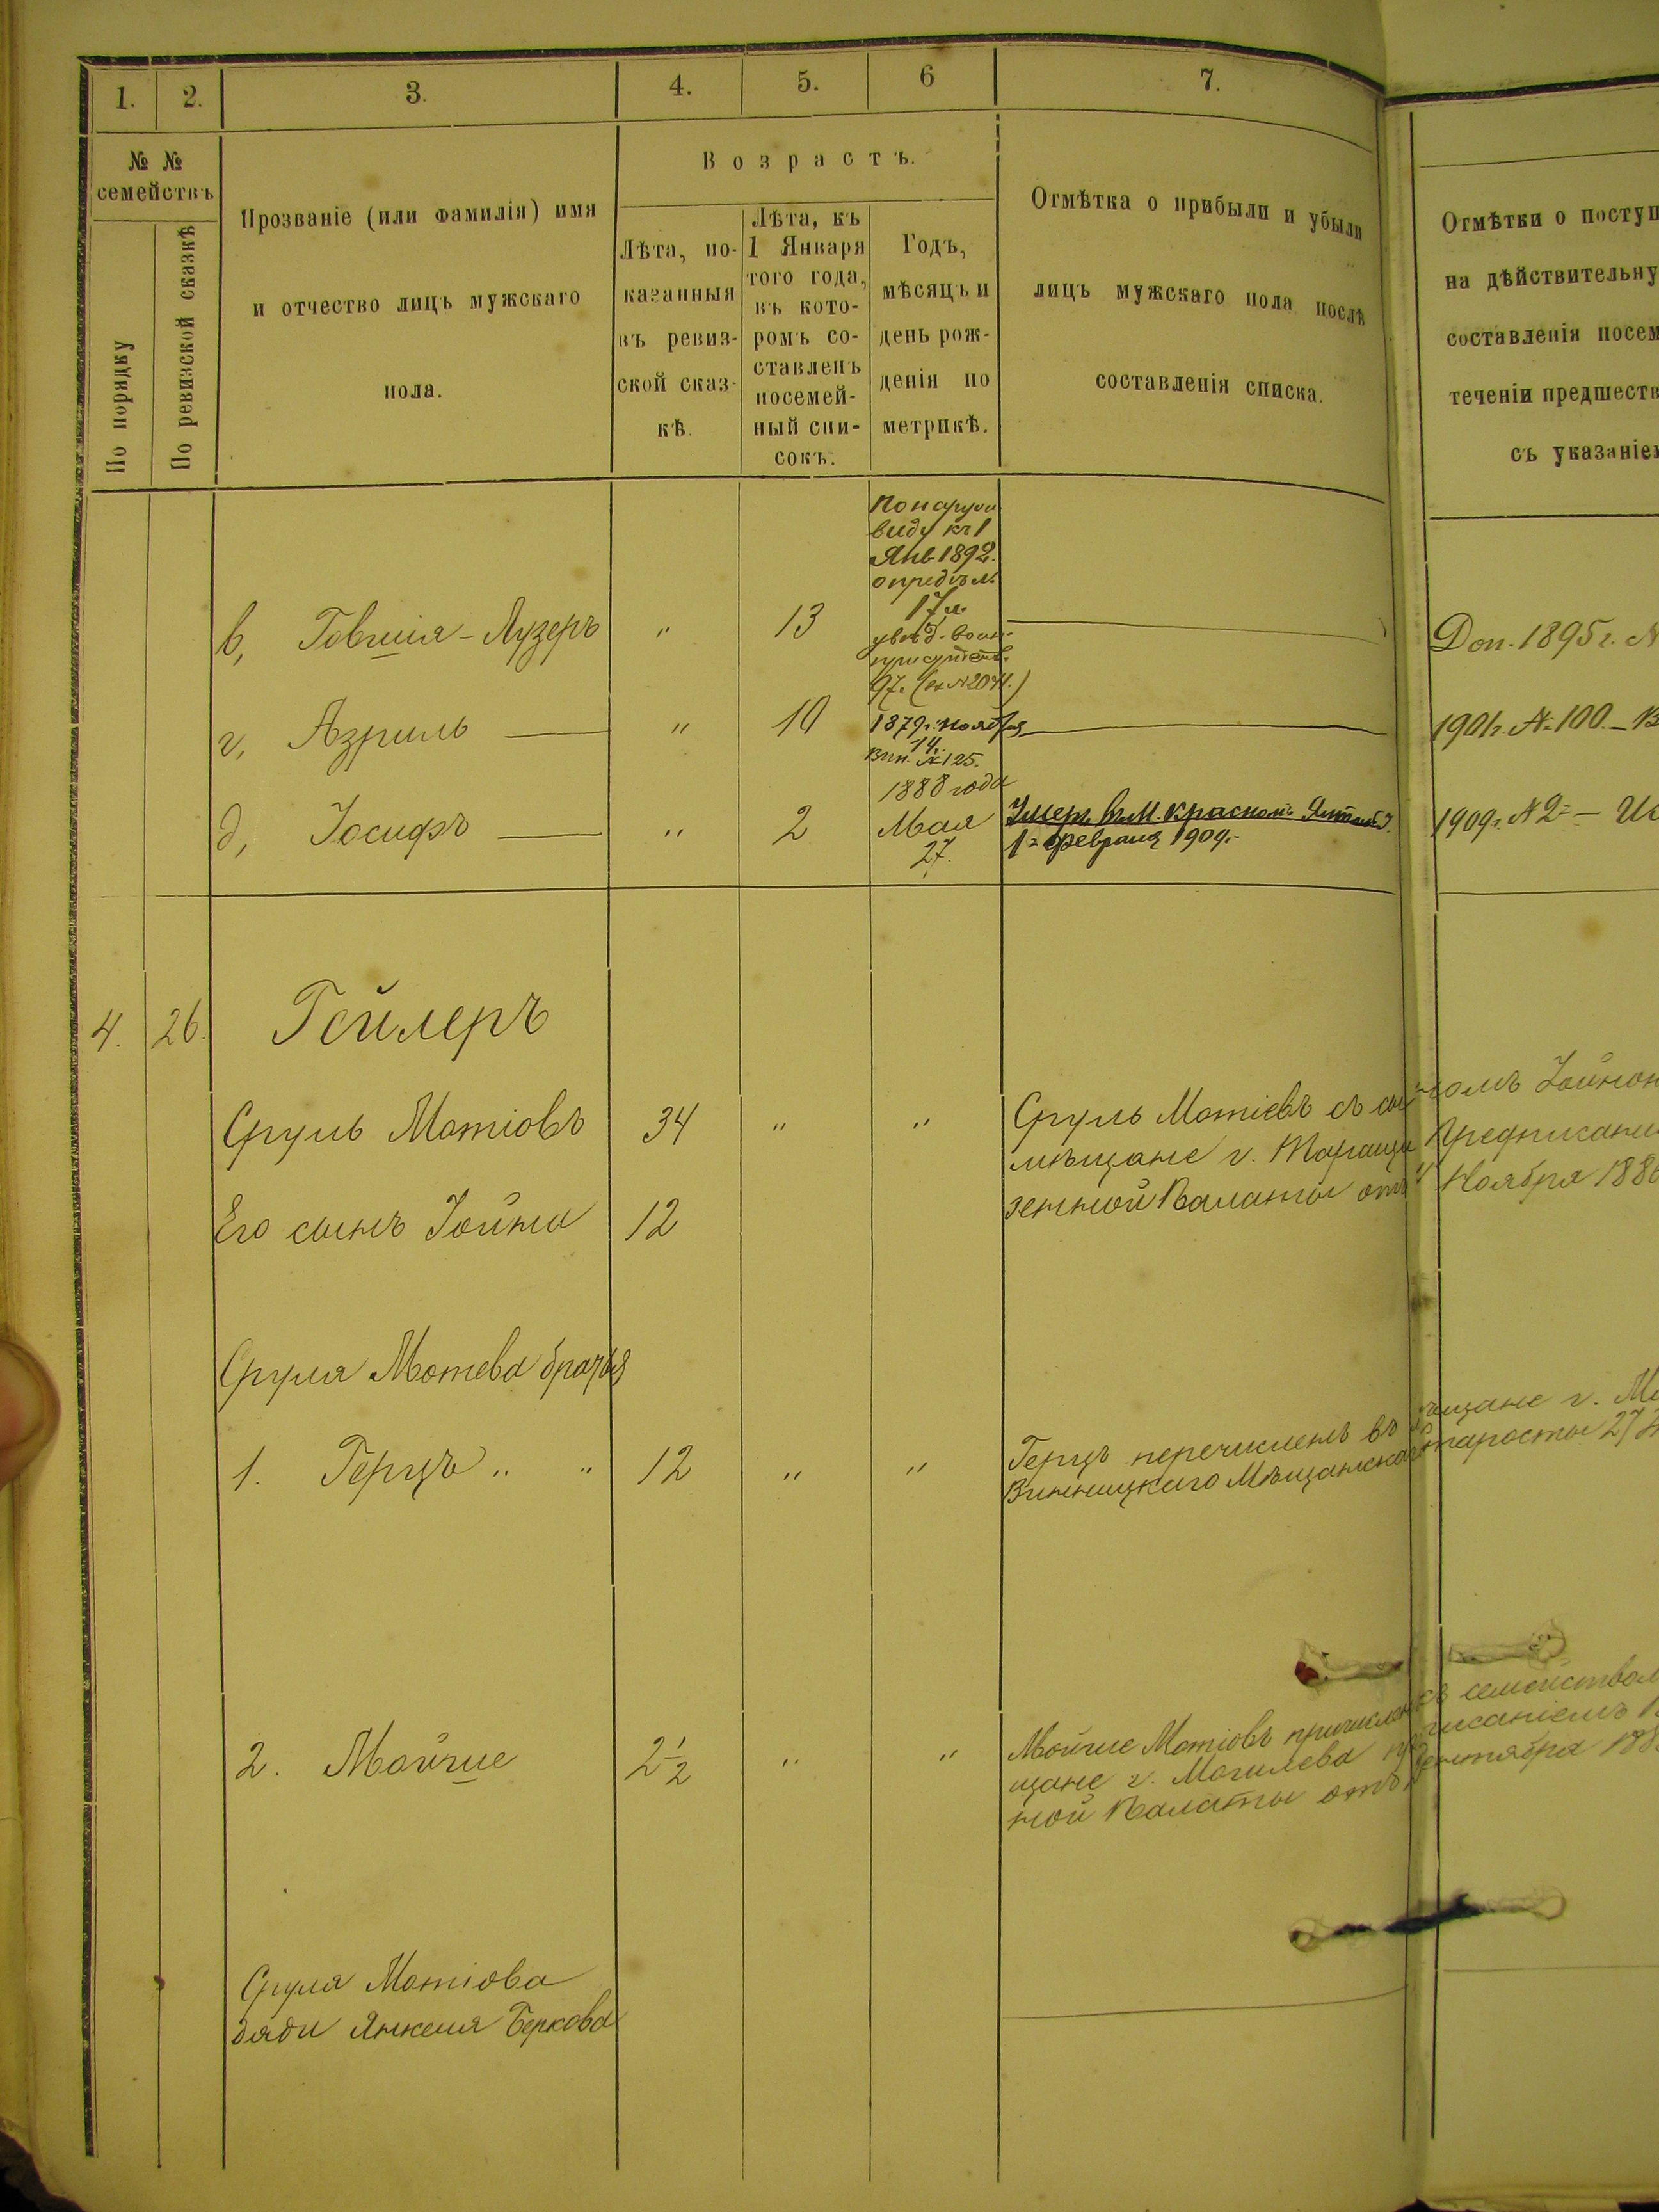 1. 2. 3. 4. 5. 6 7.
№ №
семействъ
По порядку
По ревизской сказкѣ
Прозваніе (или фамилія) имя
и отчество лицъ мужскаго
пола.
Возрастъ.
Лѣта, по-
казанныя
въ ревиз-
ской сказ-
кѣ.
Лѣта, къ
1 Января
того года,
въ кото-
ромъ со-
ставленъ
посемей-
ный спи-
сокъ.
Годъ,
мѣсяцъ и
день рож-
денія по
метрикѣ.
Отмѣтка о прибыли и убыли
лицъ мужскаго пола послѣ
составленія списка.
Отмѣтки о поступ
на дѣйствительну
составленія посем
теченіи предшеств
съ указаніем
По наружн
виду къ 1
Янв. 1892.
опредѣл.
17 л.
в, Говшія-Лузеръ " 13
97г.
Доп. 1895 г. №
г, Азриль — " 10 1879г. ноября
14.
Вин. № 125.
1901г. № 100. — В
д, Іосифъ — " 2 1888 года
Мая
27.
Умеръ въ М. Красномъ
1го февраля 1909.
1909г. № 2 —
4. 26. Гейлеръ
Сруль Мотіовъ 34 " " Сруль Мотіевъ съ сыномъ Іойною
мѣщане г. Таращи Предписані
зенной Палаты отъ Ноября 188
Его сынъ Іойна 12
Сруля Мотева братья
1. Герцъ " " 12 " " Герцъ перечисленъ въ мѣщане г. Мо
Винницкаго Мѣщанскаго старосты 27
2. Мойше 2½ " " Мойше Мотіовъ причисленъ съ семействомъ
щане г. Могилева предписаніемъ
ной Палаты отъ Сентября 188
Сруля Мотіова
дяди Янкеля Беркова